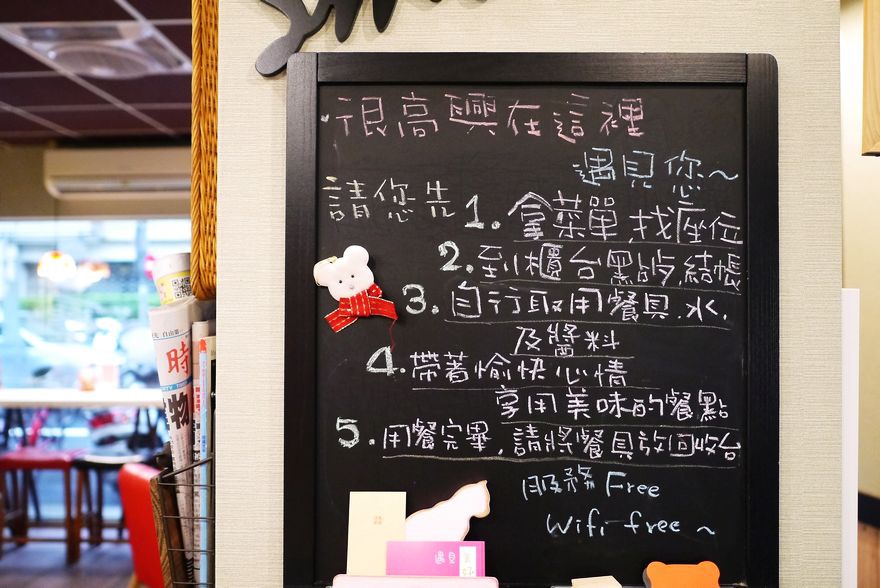 很高興在這裡
遇見您~
請您先 1. 拿菜單,找座位
2. 到櫃台點餐,結帳
3. 自行取用餐具.水.
及醬料
4. 帶著愉快心情
享用美味的餐點
5. 用餐完畢,請將餐具放回收台
服務 Free
Wifi-free ~
時
物
遇見